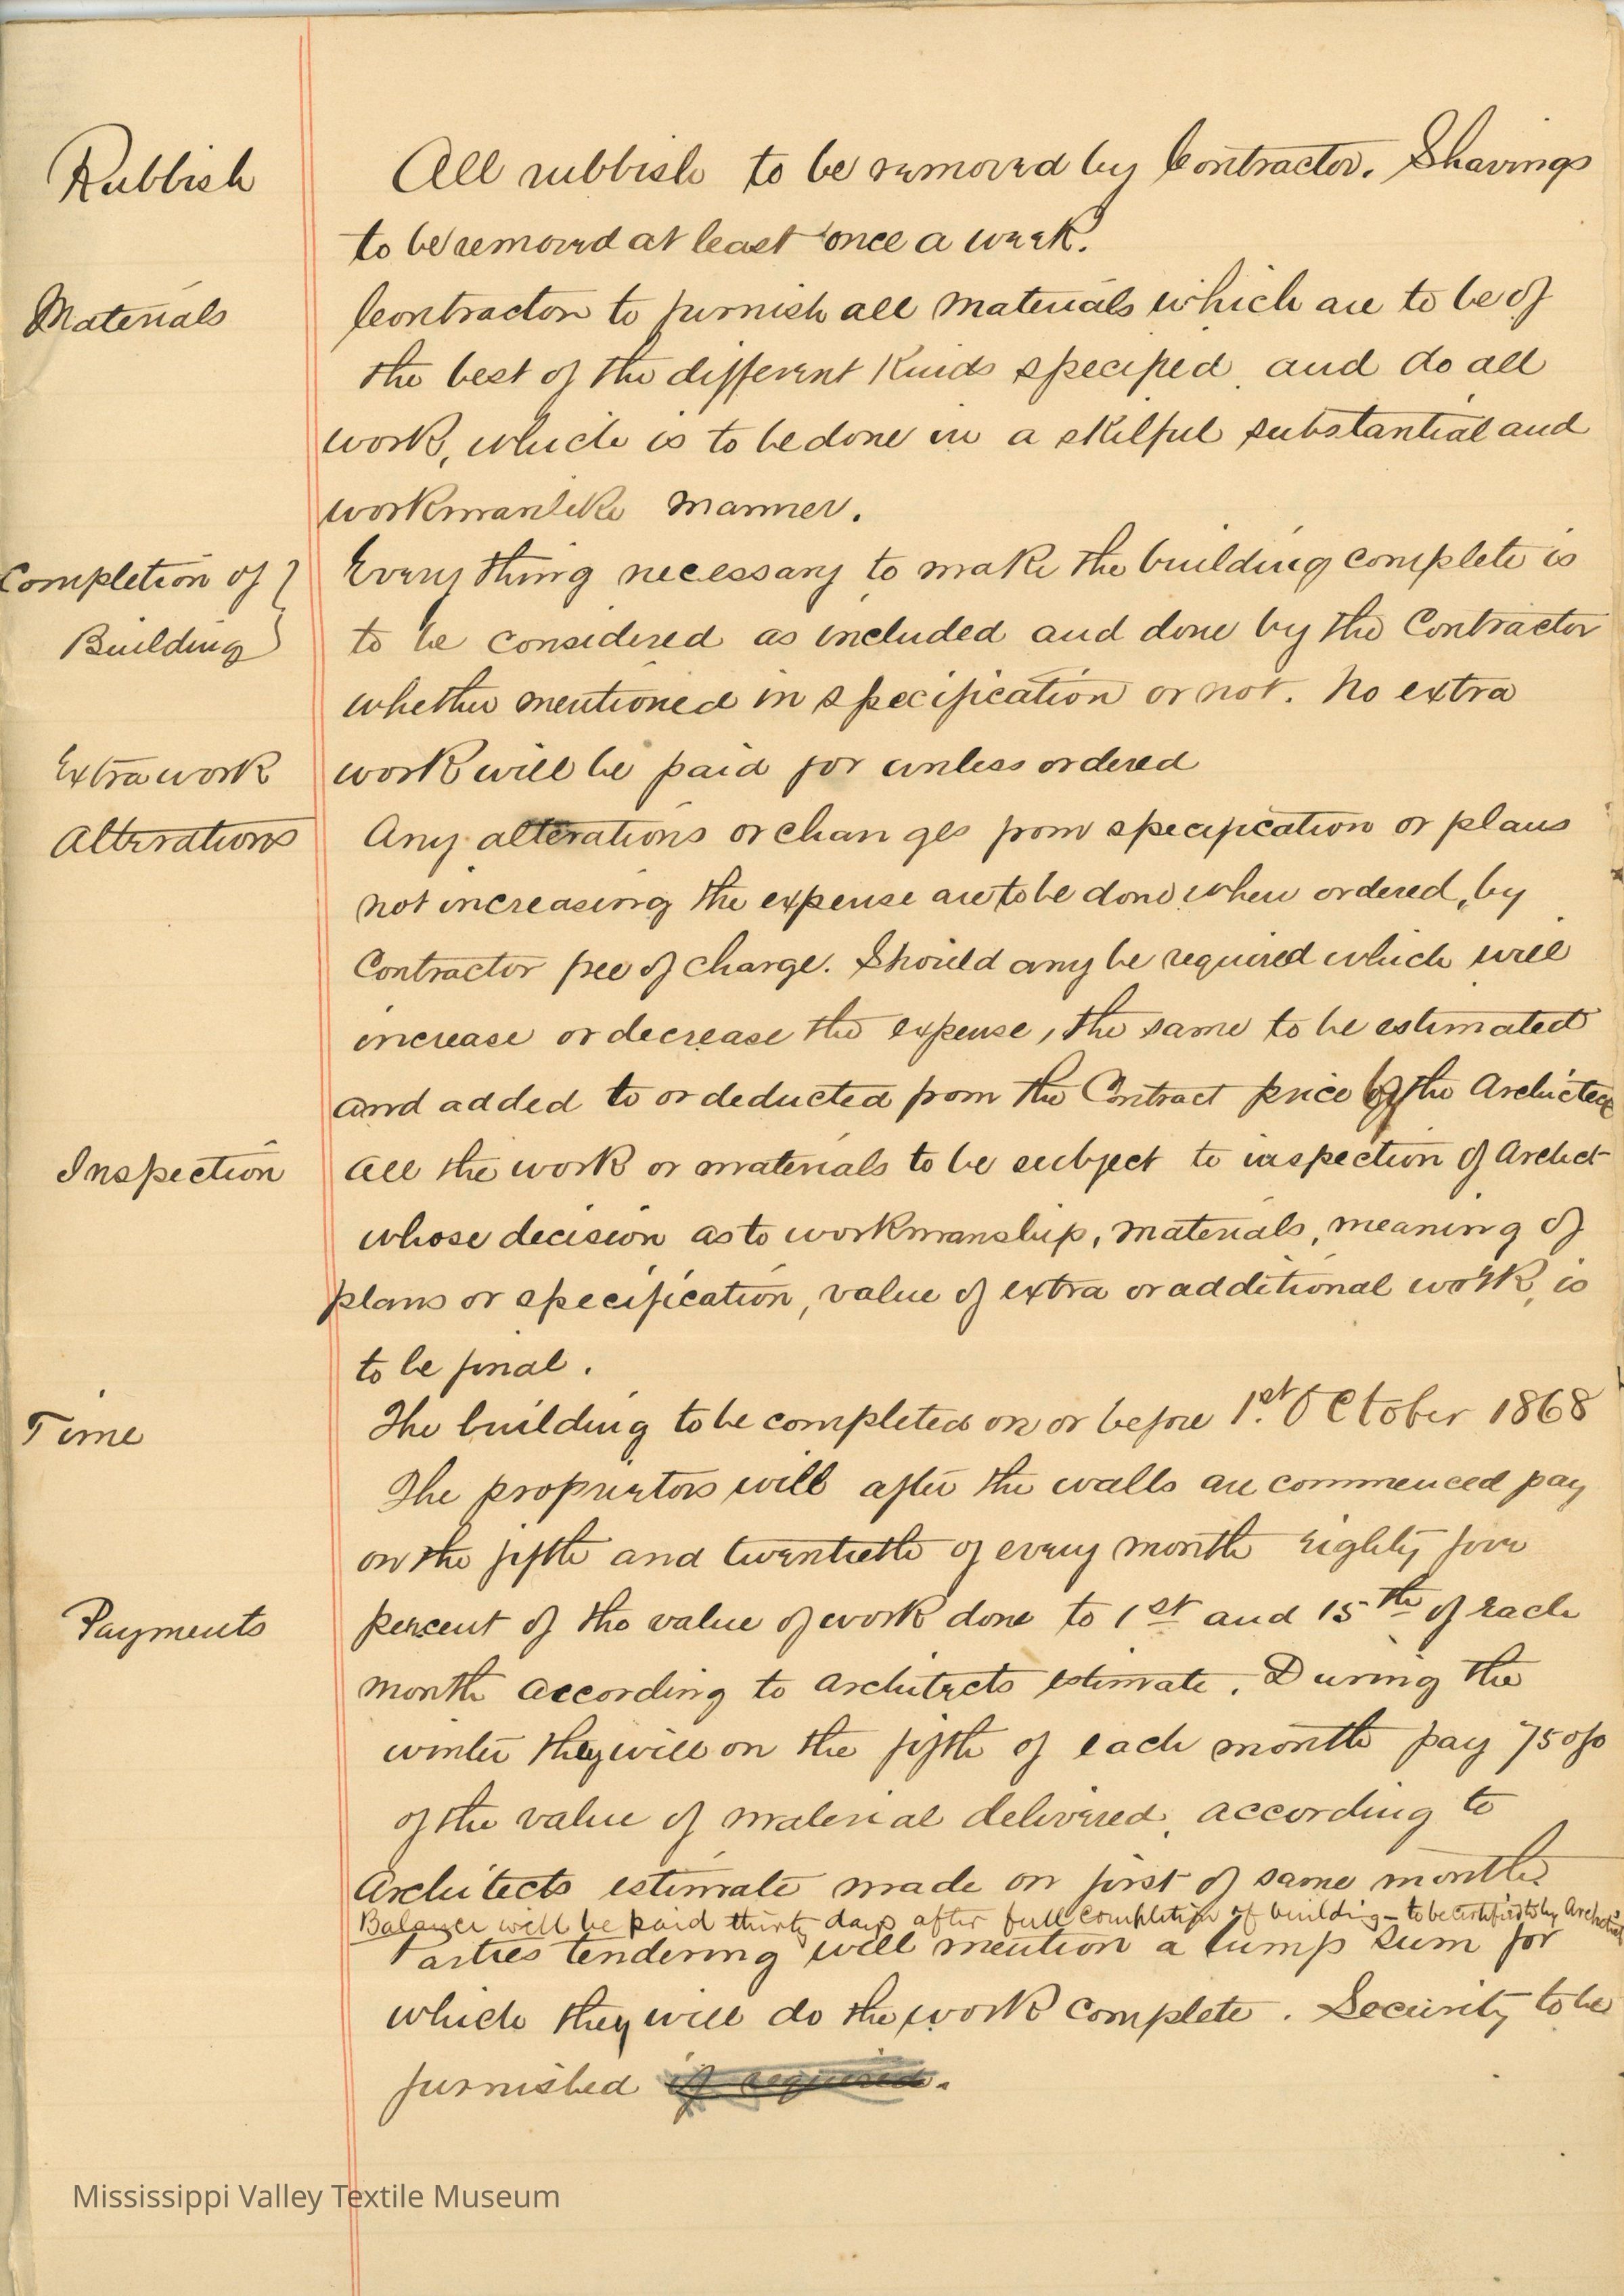 Rubbish All rubbish to be removed by Contractor. Shavings
to be removed at least once a week.
Materials Contractor to furnish all materials which are to be of
the best of the different Kinds specified and do all
work, which is to be done in a skilful substantial and
workmanlike manner.
Completion of } Every thing necessary to make the building complete is
Building } to be considered as included and done by the Contractor
whether mentioned in specification or not. No extra
Extra work work will be paid for unless ordered
Alterations Any alterations or changes from specification or plans
not increasing the expense are to be done when ordered, by
Contractor free of charge. Should any be required which will
increase or decrease the expense, the same to be estimated
and added to or deducted from the Contract price by the Architect
Inspection All the work or materials to be subject to inspection of Archct
whose decision as to workmanship, materials, meaning of
plans or specification, value of extra or additional work, is
to be final.
Time The building to be completed on or before 1st. October 1868
The proprietors will after the walls are commenced pay
on the fifth and twentieth of every month eighty five
Payments percent of the value of work done to 1st and 15th of each
month according to architects estimate. During the
winter they will on the fifth of each month pay 75 o/o
of the value of material delivered, according to
Architects estimate made on first of same month
Balance will be paid thirty days after full completion of building - to be certified to by Architect
Parties tendering will mention a lump sum for
which they will do the work complete. Security to be
furnished if required.
Mississippi Valley Textile Museum